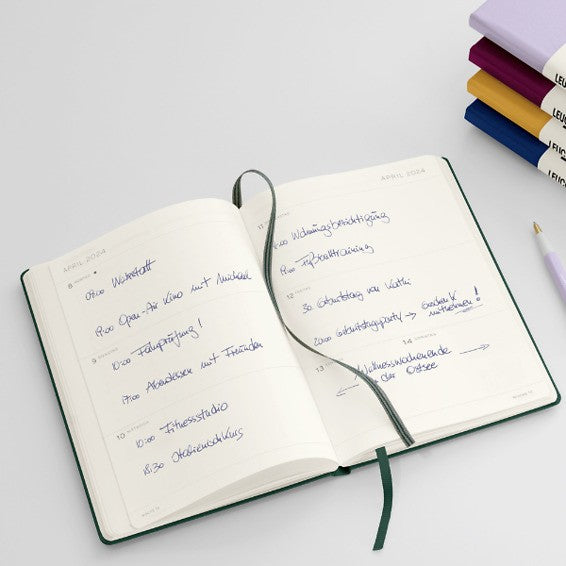 APRIL 2024
8 MONTAG
08:00 Werkstatt
19:00 Open-Air Kino mit Michael
9 DIENSTAG
10:00 Fahrprüfung!
17:00 Abendessen mit Freunden
10 MITTWOCH
10:00 Fitnessstudio
18:30 Italienischkurs
WOCHE 15
APRIL 2024
11
Wohnungsbesichtigung
Fußballtraining
12 FREITAG
Geburtstag von Kathi
20:00 Geburtstagsparty →
mitnehmen!
13
14 SONNTAG
Wellnesswochenende
an der Ostsee
WOCHE 15
LEUC
LEUC
LEUC
LEUC